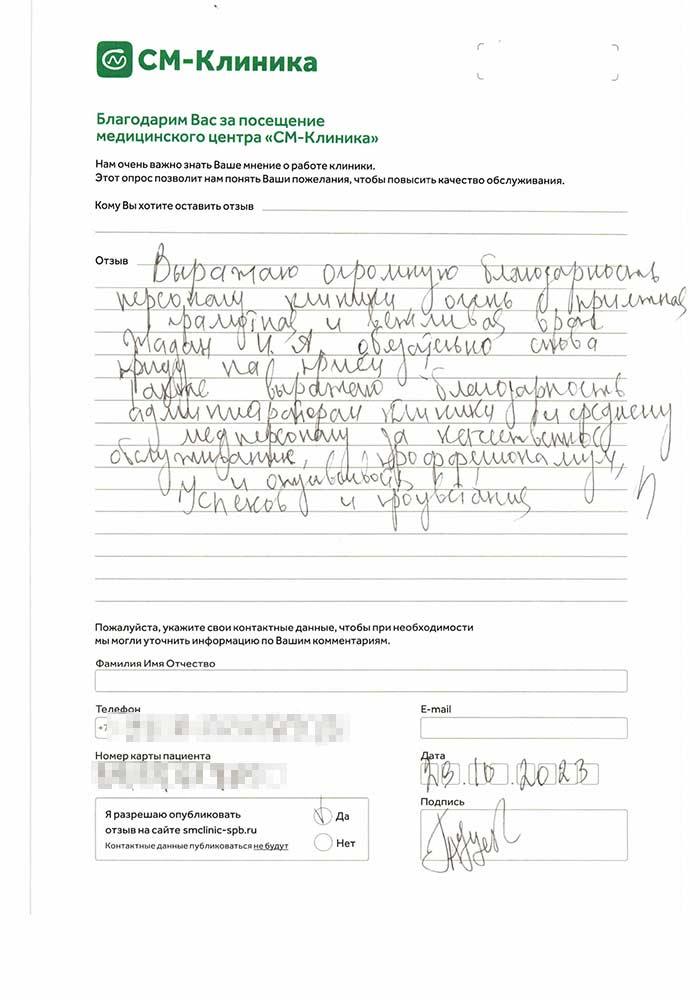 СМ-Клиника
Благодарим Вас за посещение
медицинского центра «СМ-Клиника»
Нам очень важно знать Ваше мнение о работе клиники.
Этот опрос позволит нам понять Ваши пожелания, чтобы повысить качество обслуживания.
Кому Вы хотите оставить отзыв
Отзыв Выражаю огромную благодарность
персоналу клиники, очень приятная
грамотная и вежливая врач
Жадан И. А, обязательно снова
приду на прием
Также выражаю благодарность
администраторам клинику и среднему
медперсоналу за качественное
обслуживание,
и отзывчивость
Успехов и процветания
Пожалуйста, укажите свои контактные данные, чтобы при необходимости
мы могли уточнить информацию по Вашим комментариям.
Фамилия Имя Отчество
Телефон E-mail
+7
Номер карты пациента Дата
23.10.2023
Я разрешаю опубликовать
отзыв на сайте smclinic-spb.ru
Контактные данные публиковаться не будут
Да
Нет
Подпись